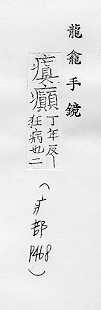 龍龕手鏡
瘨癲丁年反
狂病也二
(疒部
P468)